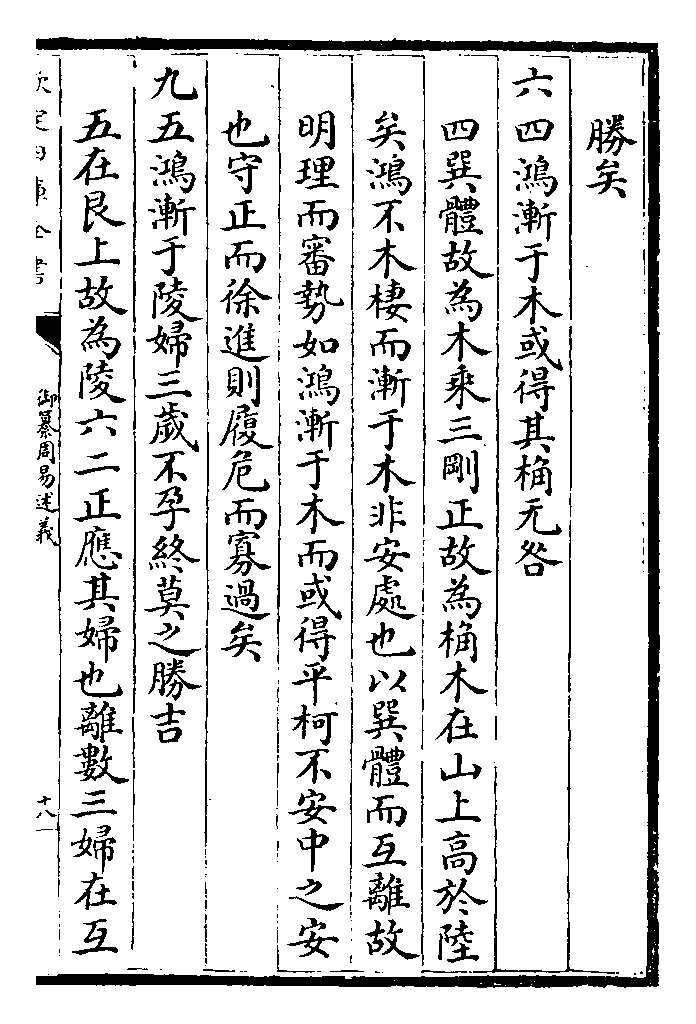 勝矣
六四鴻漸于木或得其桷无咎
四巽體故為木乘三剛正故為桷木在山上高於陸
矣鴻不木棲而漸于木非安處也以巽體而互離故
明理而審勢如鴻漸于木而或得平柯不安中之安
也守正而徐進則履危而寡過矣
九五鴻漸于陵婦三歲不孕終莫之勝吉
五在艮上故為陵六二正應其婦也離數三婦在互
欽定四庫全書
御纂周易述義
十八